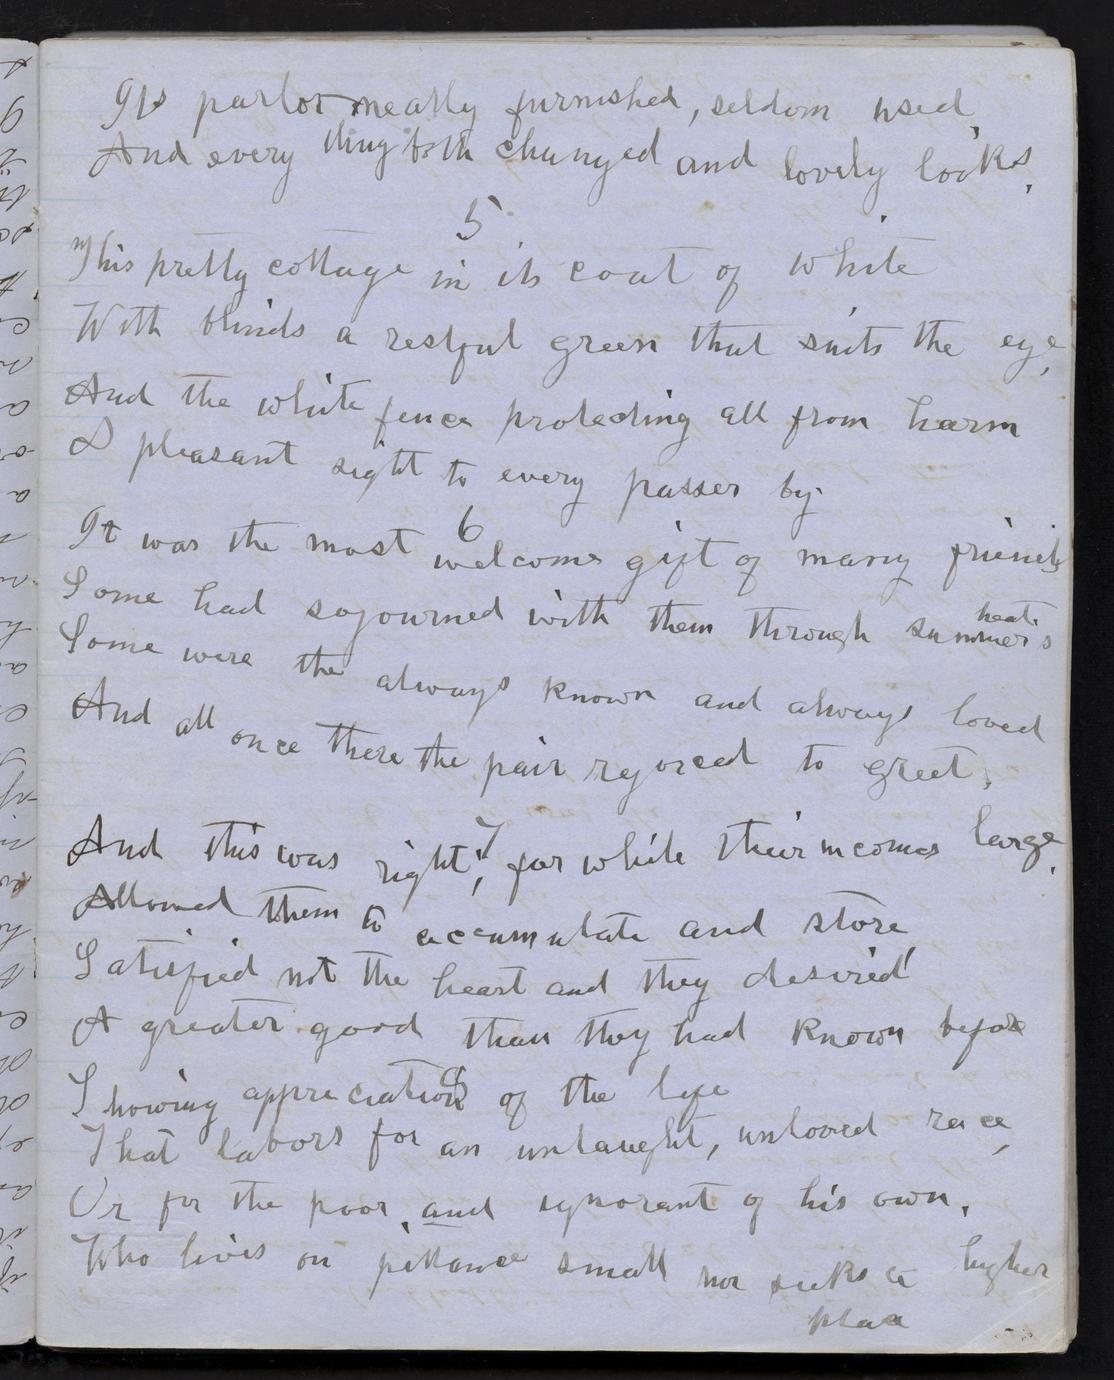 Its parlor neatly furnished, seldom used,
And every thing both changed and lovely looks,
5
This pretty cottage in its coat of white
With blinds a restful green that suits the eye,
And the white fence protecting all from harm
A pleasant sight to every passer by
6
It was the most welcome gift of many friends
Some had sojourned with them through summer's heat
Some were the always known and always loved
And all once there the pair rejoiced to greet.
7
And this was right; for while their incomes large,
Allowed them to accumulate and store,
Satisfied not the heart and they desired
A greater good than they had known before
8
Showing appreciation of the life
That labors for an untaught, unloved race,
Or for the poor, and ignorant of his own,
Who lives on pittance small nor seeks a higher
place